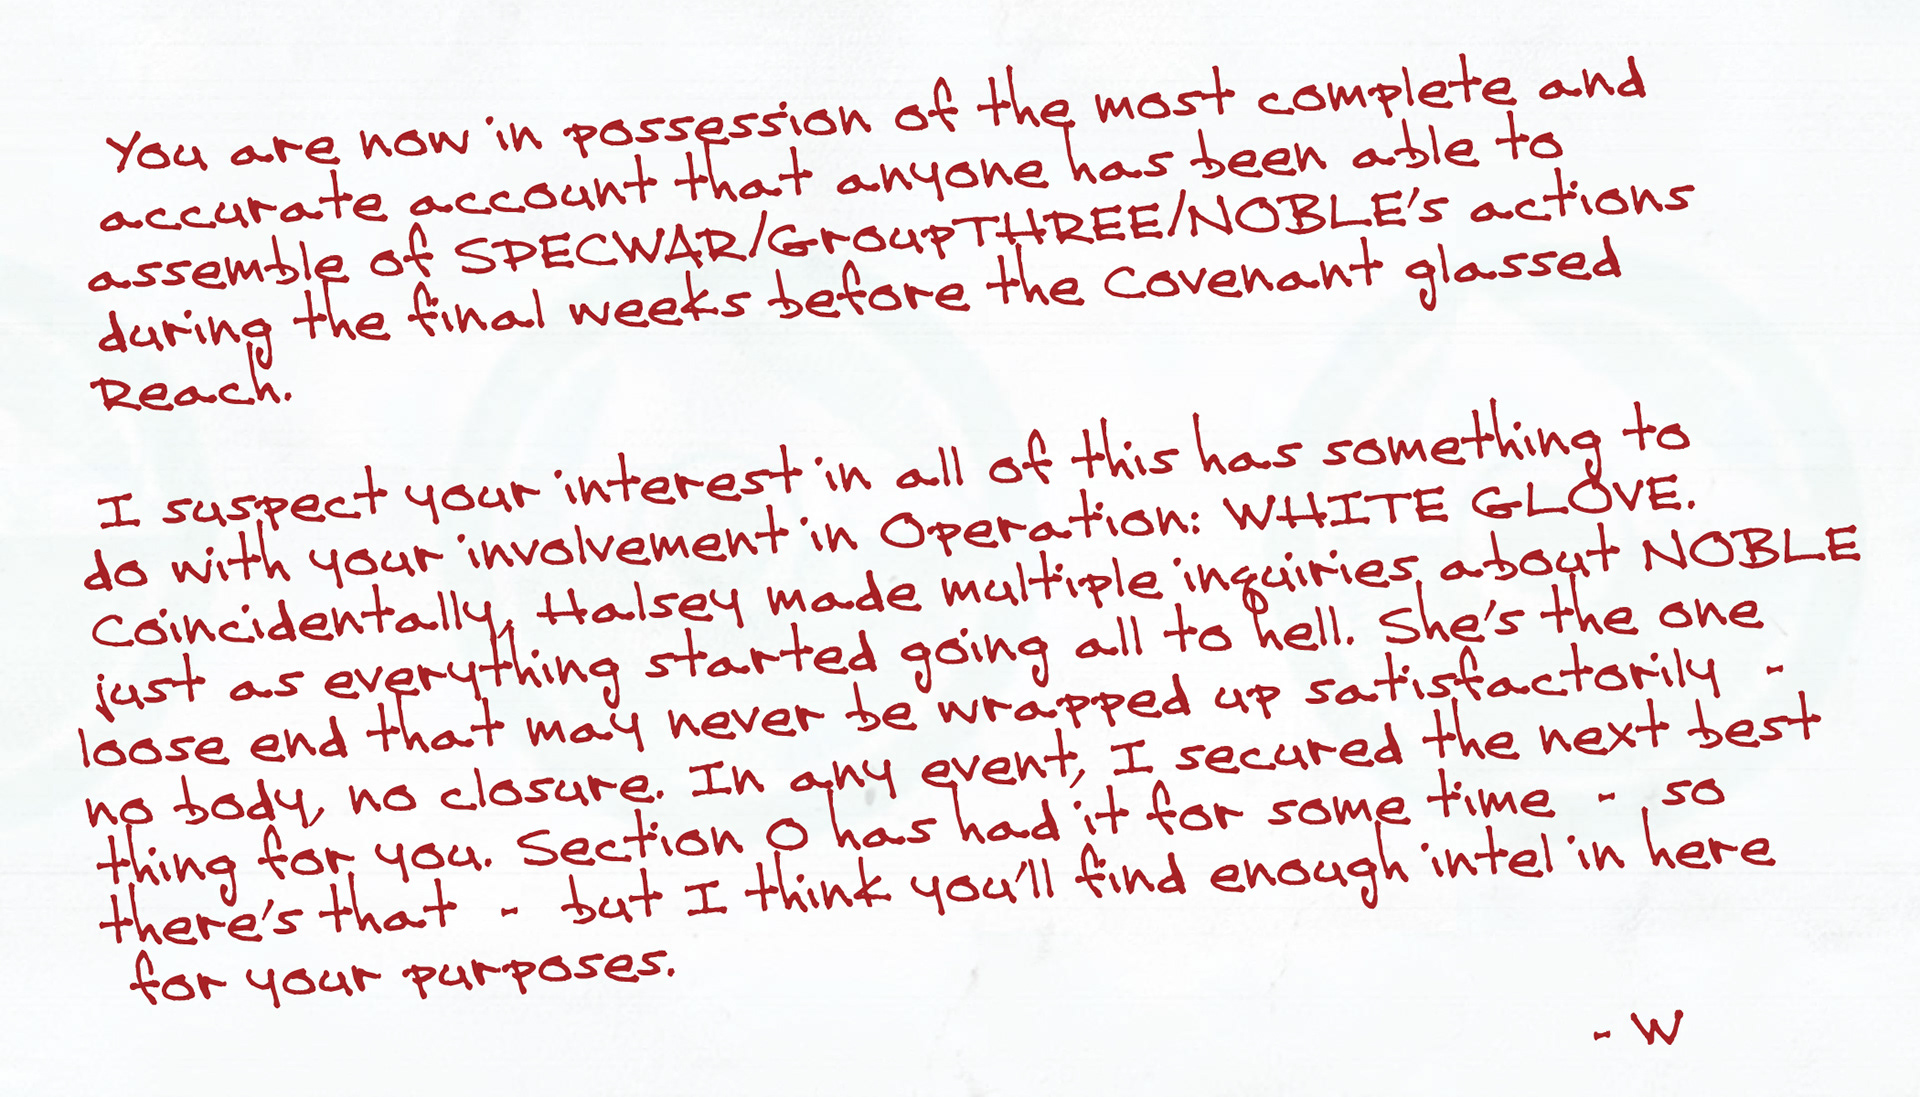 You are now in possession of the most complete and
accurate account that anyone has been able to
assemble of SPECWAR/GroupTHREE/NOBLE's actions
during the final weeks before the Covenant glassed
Reach.
I suspect your interest in all of this has something to
do with your involvement in Operation: WHITE GLOVE.
Coincidentally, Halsey made multiple inquiries about NOBLE
just as everything started going all to hell. She's the one
loose end that may never be wrapped up satisfactorily -
no body, no closure. In any event, I secured the next best
thing for you. Section 0 has had it for some time - so
there's that - but I think you'll find enough intel in here
for your purposes.
- W